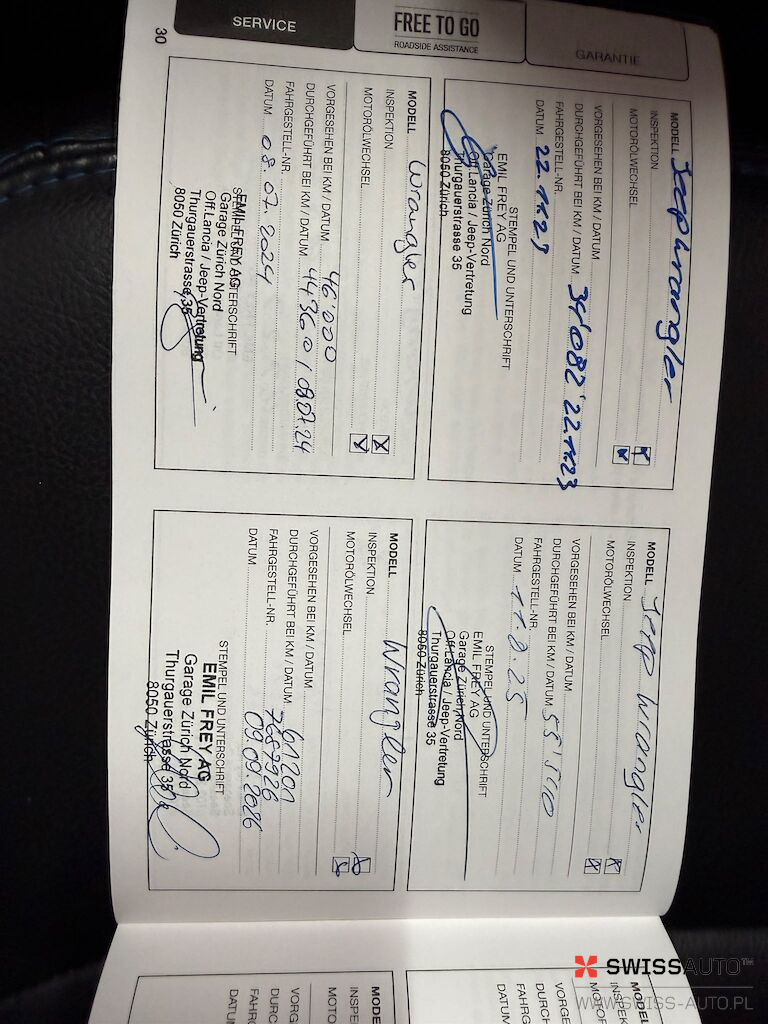 30
SERVICE
FREE TO GO
ROADSIDE ASSISTANCE
GARANTIE
MODELL Jeep Wrangler
INSPEKTION
MOTORÖLWECHSEL
VORGESEHEN BEI KM / DATUM
DURCHGEFÜHRT BEI KM / DATUM 34'082 22.11.23
FAHRGESTELL-NR.
DATUM 22.11.23
STEMPEL UND UNTERSCHRIFT
EMIL FREY AG
Garage Zürich Nord
Off.Lancia / Jeep-Vertretung
Thurgauerstrasse 35
8050 Zürich
MODELL Wrangler
INSPEKTION
MOTORÖLWECHSEL
VORGESEHEN BEI KM / DATUM 46'000
DURCHGEFÜHRT BEI KM / DATUM 44360 / 08.07.24
FAHRGESTELL-NR.
DATUM 08.07.2024
STEMPEL UND UNTERSCHRIFT
EMIL FREY AG
Garage Zürich Nord
Off.Lancia / Jeep-Vertretung
Thurgauerstrasse 35
8050 Zürich
MODELL Jeep Wrangler
INSPEKTION
MOTORÖLWECHSEL
VORGESEHEN BEI KM / DATUM
DURCHGEFÜHRT BEI KM / DATUM
FAHRGESTELL-NR.
DATUM 11.8.25
STEMPEL UND UNTERSCHRIFT
EMIL FREY AG
Garage Zürich Nord
Off.Lancia / Jeep-Vertretung
Thurgauerstrasse 35
8050 Zürich
MODELL Wrangler
INSPEKTION
MOTORÖLWECHSEL
VORGESEHEN BEI KM / DATUM
DURCHGEFÜHRT BEI KM / DATUM 61201
FAHRGESTELL-NR.
DATUM
STEMPEL UND UNTERSCHRIFT
EMIL FREY AG
Garage Zürich Nord
Thurgauerstrasse 35
8050 Zürich
SWISSAUTO™
WWW.SWISS-AUTO.PL